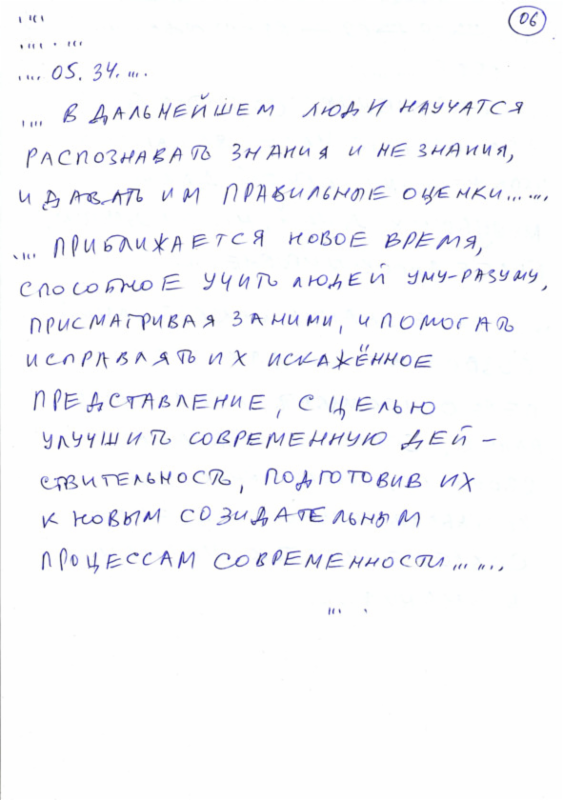 06
ı ıcı
ıııı . ııc
.... 05. 34. ....
.... В ДАЛЬНЕЙШЕМ ЛЮДИ НАУЧАТСЯ
РАСПОЗНАВАТЬ ЗНАНИЯ И НЕ ЗНАНИЯ,
И ДАВАТЬ ИМ ПРАВИЛЬНЫЕ ОЦЕНКИ... ....
.... ПРИБЛИЖАЕТСЯ НОВОЕ ВРЕМЯ,
СПОСОБНОЕ УЧИТЬ ЛЮДЕЙ УМУ-РАЗУМУ,
ПРИСМАТРИВАЯ ЗА НИМИ, И ПОМОГАТЬ
ИСПРАВЛЯТЬ ИХ ИСКАЖЁННОЕ
ПРЕДСТАВЛЕНИЕ, С ЦЕЛЬЮ
УЛУЧШИТЬ СОВРЕМЕННУЮ ДЕЙ-
СТВИТЕЛЬНОСТЬ, ПОДГОТОВИВ ИХ
К НОВЫМ СОЗИДАТЕЛЬНЫМ
ПРОЦЕССАМ СОВРЕМЕННОСТИ... ....
... .